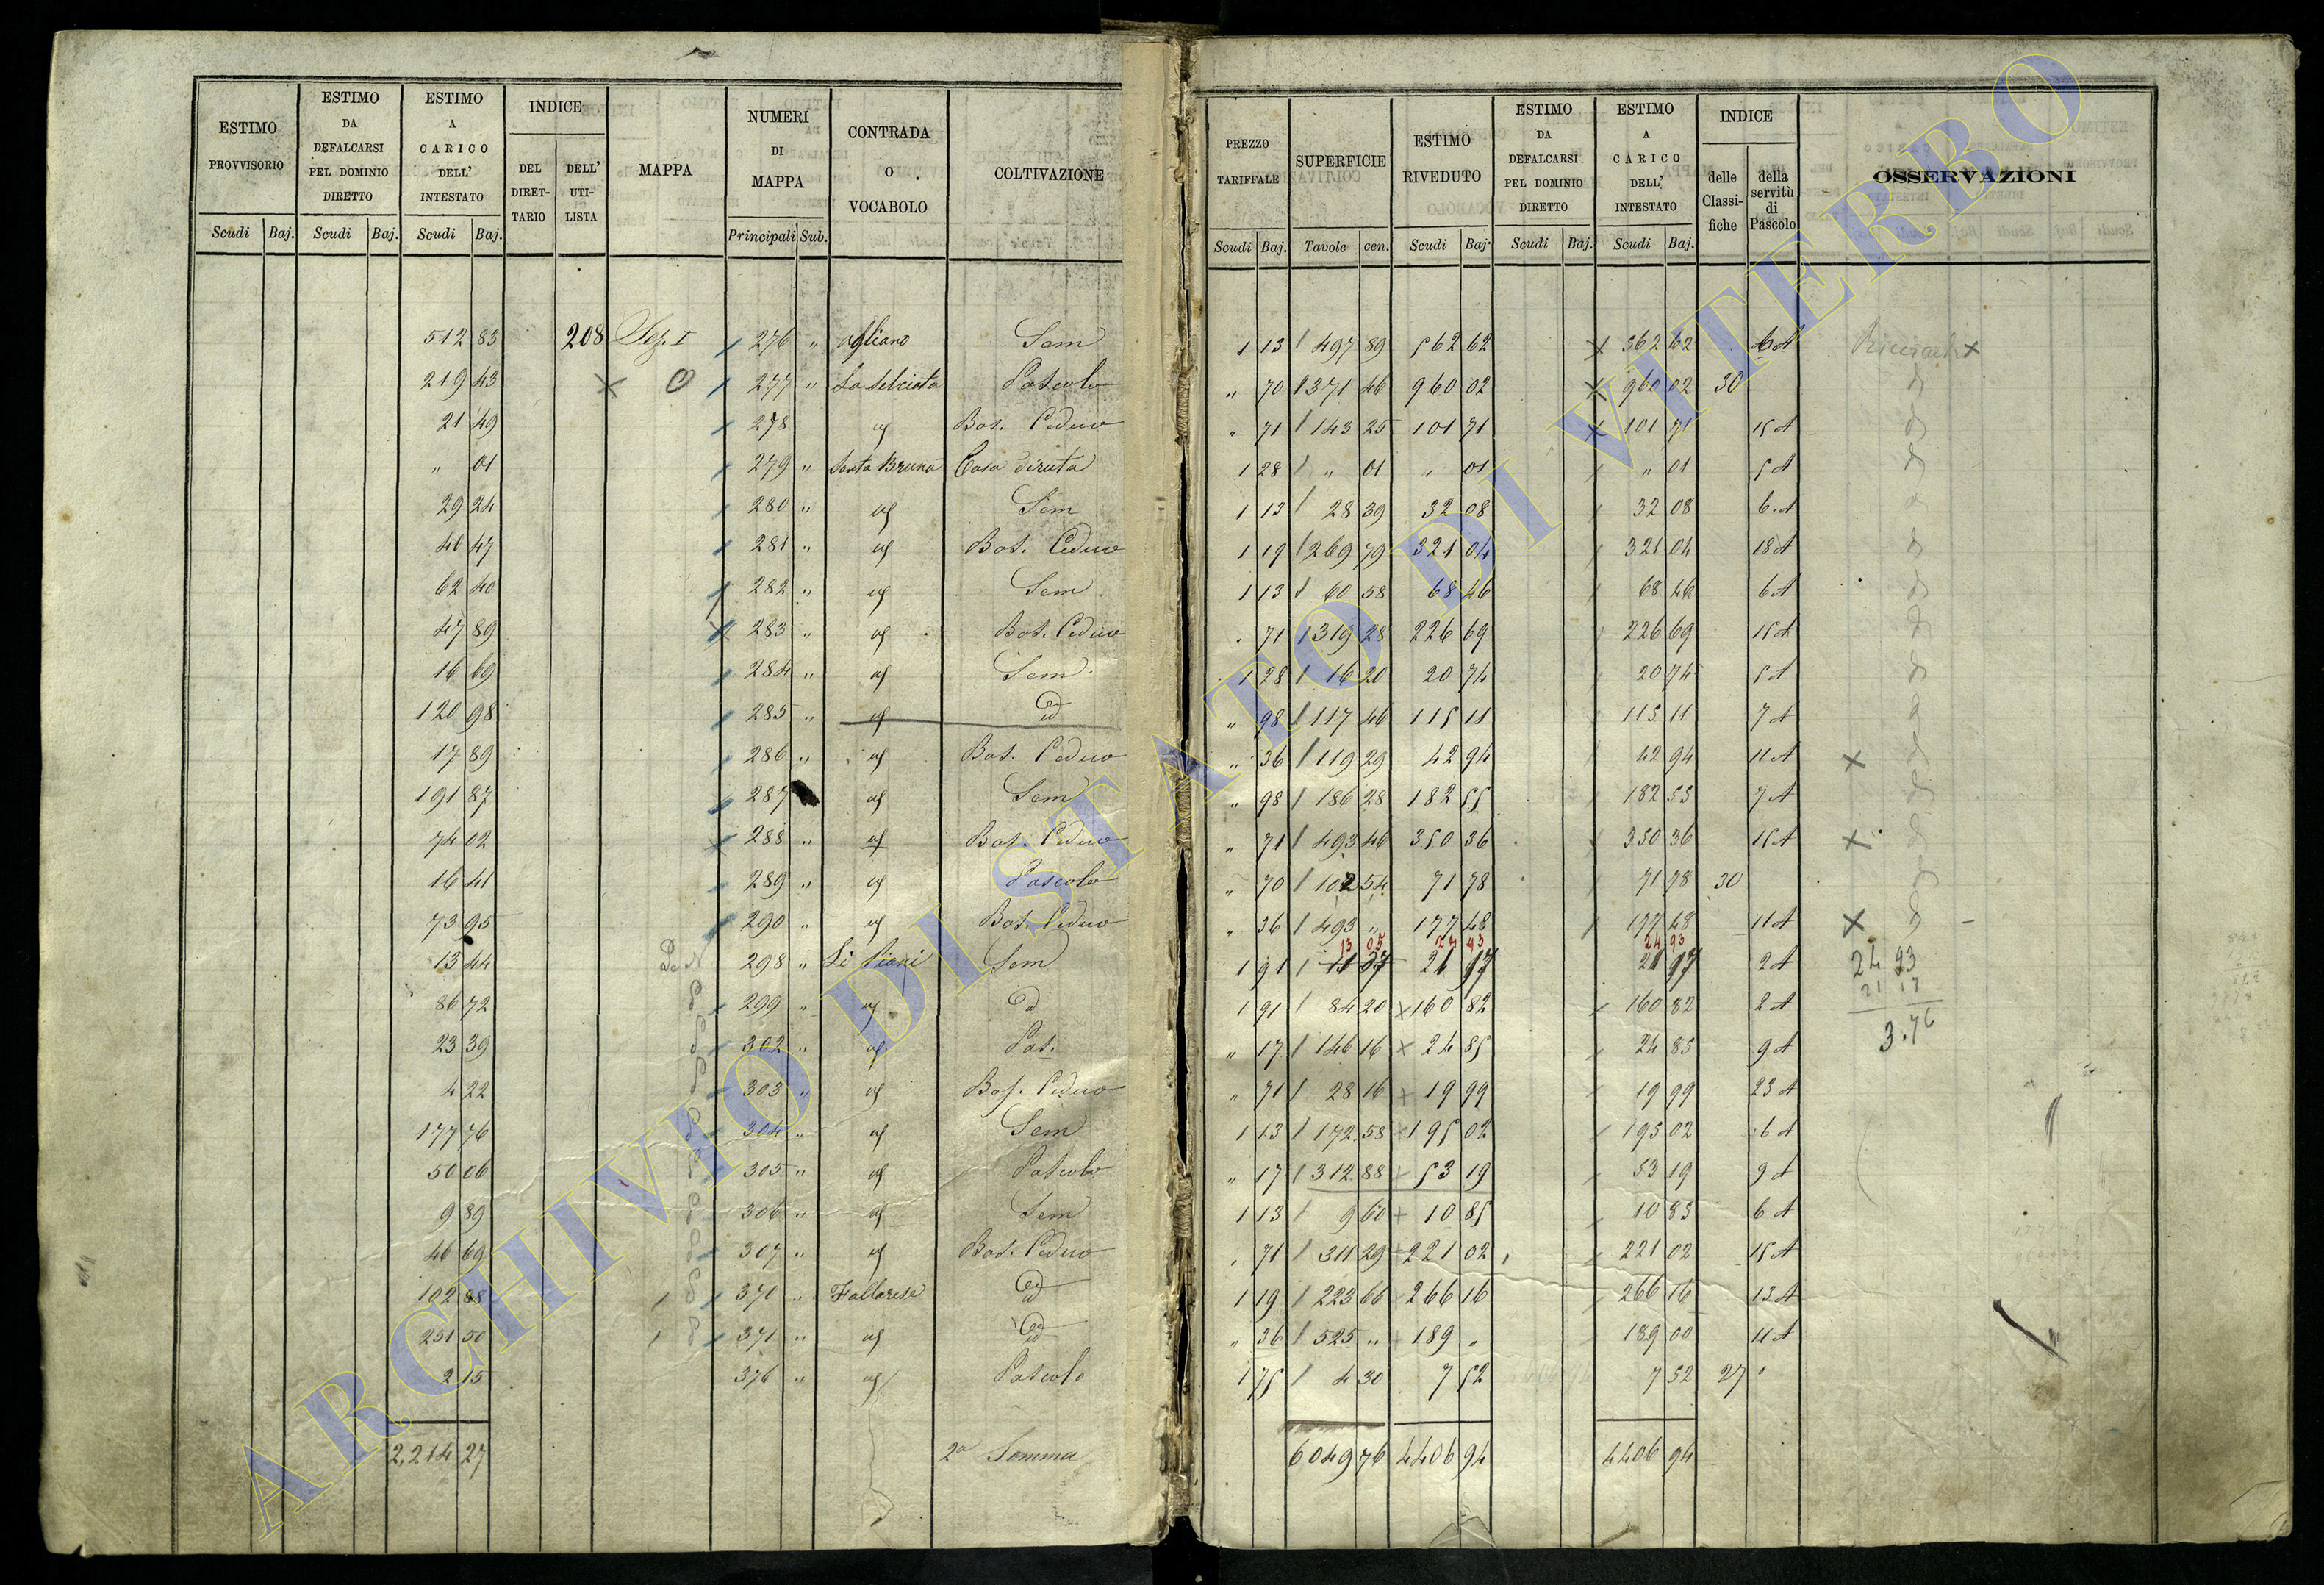 ESTIMO PROVVISORIO | ESTIMO DA DEFALCARSI PEL DOMINIO DIRETTO | ESTIMO A CARICO DELL' INTESTATO | INDICE | MAPPA | NUMERI DI MAPPA | CONTRADA O VOCABOLO | COLTIVAZIONE | PREZZO TARIFFALE | SUPERFICIE | ESTIMO RIVEDUTO | ESTIMO DA DEFALCARSI PEL DOMINIO DIRETTO | ESTIMO A CARICO DELL' INTESTATO | INDICE | OSSERVAZIONI
DEL DIRETTARIO | DELL' UTILISTA | delle Classifiche | della servitù di Pascolo
Scudi | Baj. | Scudi | Baj. | Scudi | Baj. | Principali | Sub. | Scudi | Baj. | Tavole | cen. | Scudi | Baj. | Scudi | Baj. | Scudi | Baj.
512 83 208 Sez. I 276 " Agliano Sem 1 13 497 89 562 62 362 62 6 A
219 43 277 " La Selciata Pascolo " 70 1371 46 960 02 960 02 30
21 49 278 id Bos. Ceduo " 71 143 25 101 71 101 71 15 A
" 01 279 " Santa Bruna Casa diruta 1 28 " 01 " 01 " 01 5 A
29 24 280 " id Sem 1 13 28 39 32 08 32 08 6 A
40 47 281 " id Bos. Ceduo 1 19 269 79 321 04 321 04 18 A
62 40 282 " id Sem 1 13 60 58 68 46 68 46 6 A
47 89 283 " id Bos. Ceduo " 71 319 28 226 69 226 69 15 A
16 69 284 " id Sem 1 28 16 20 20 74 20 74 5 A
120 98 285 " id id " 98 117 46 115 11 115 11 7 A
17 89 286 " id Bos. Ceduo " 36 119 29 42 94 42 94 11 A
191 87 287 id Sem " 98 186 28 182 55 182 55 7 A
74 02 288 " id Bos. Ceduo " 71 493 46 350 36 350 36 15 A
16 41 289 " id Pascolo " 70 102 54 71 78 71 78 30
73 95 290 " id Bos. Ceduo " 36 493 " 177 48 177 48 11 A
13 05 24 93 24 93
13 44 298 " Li Piani Sem 1 91 11 37 21 17 21 17 2 A 24 93
86 72 299 " id id 1 91 84 20 160 82 160 82 2 A 21 17
23 39 302 " id Pas. " 17 146 16 24 85 24 85 9 A 3.76
4 22 303 " id Bos. Ceduo " 71 28 16 19 99 19 99 23 A
177 76 304 " id Sem 1 13 172 58 195 02 195 02 6 A
50 06 305 " id Pascolo " 17 312 88 53 19 53 19 9 A
9 89 306 " id Sem 1 13 9 60 10 85 10 85 6 A
46 69 307 " id Bos. Ceduo " 71 311 29 221 02 221 02 15 A
102 88 370 " Fallarese id 1 19 223 66 266 16 266 16 13 A
251 50 371 " id id " 36 525 " 189 " 189 00 11 A
2 15 376 " id Pascolo 1 75 4 30 7 52 7 52 27
2,214 27 2a Somma 6049 76 4406 94 4406 94
ARCHIVIO DI STATO DI VITERBO